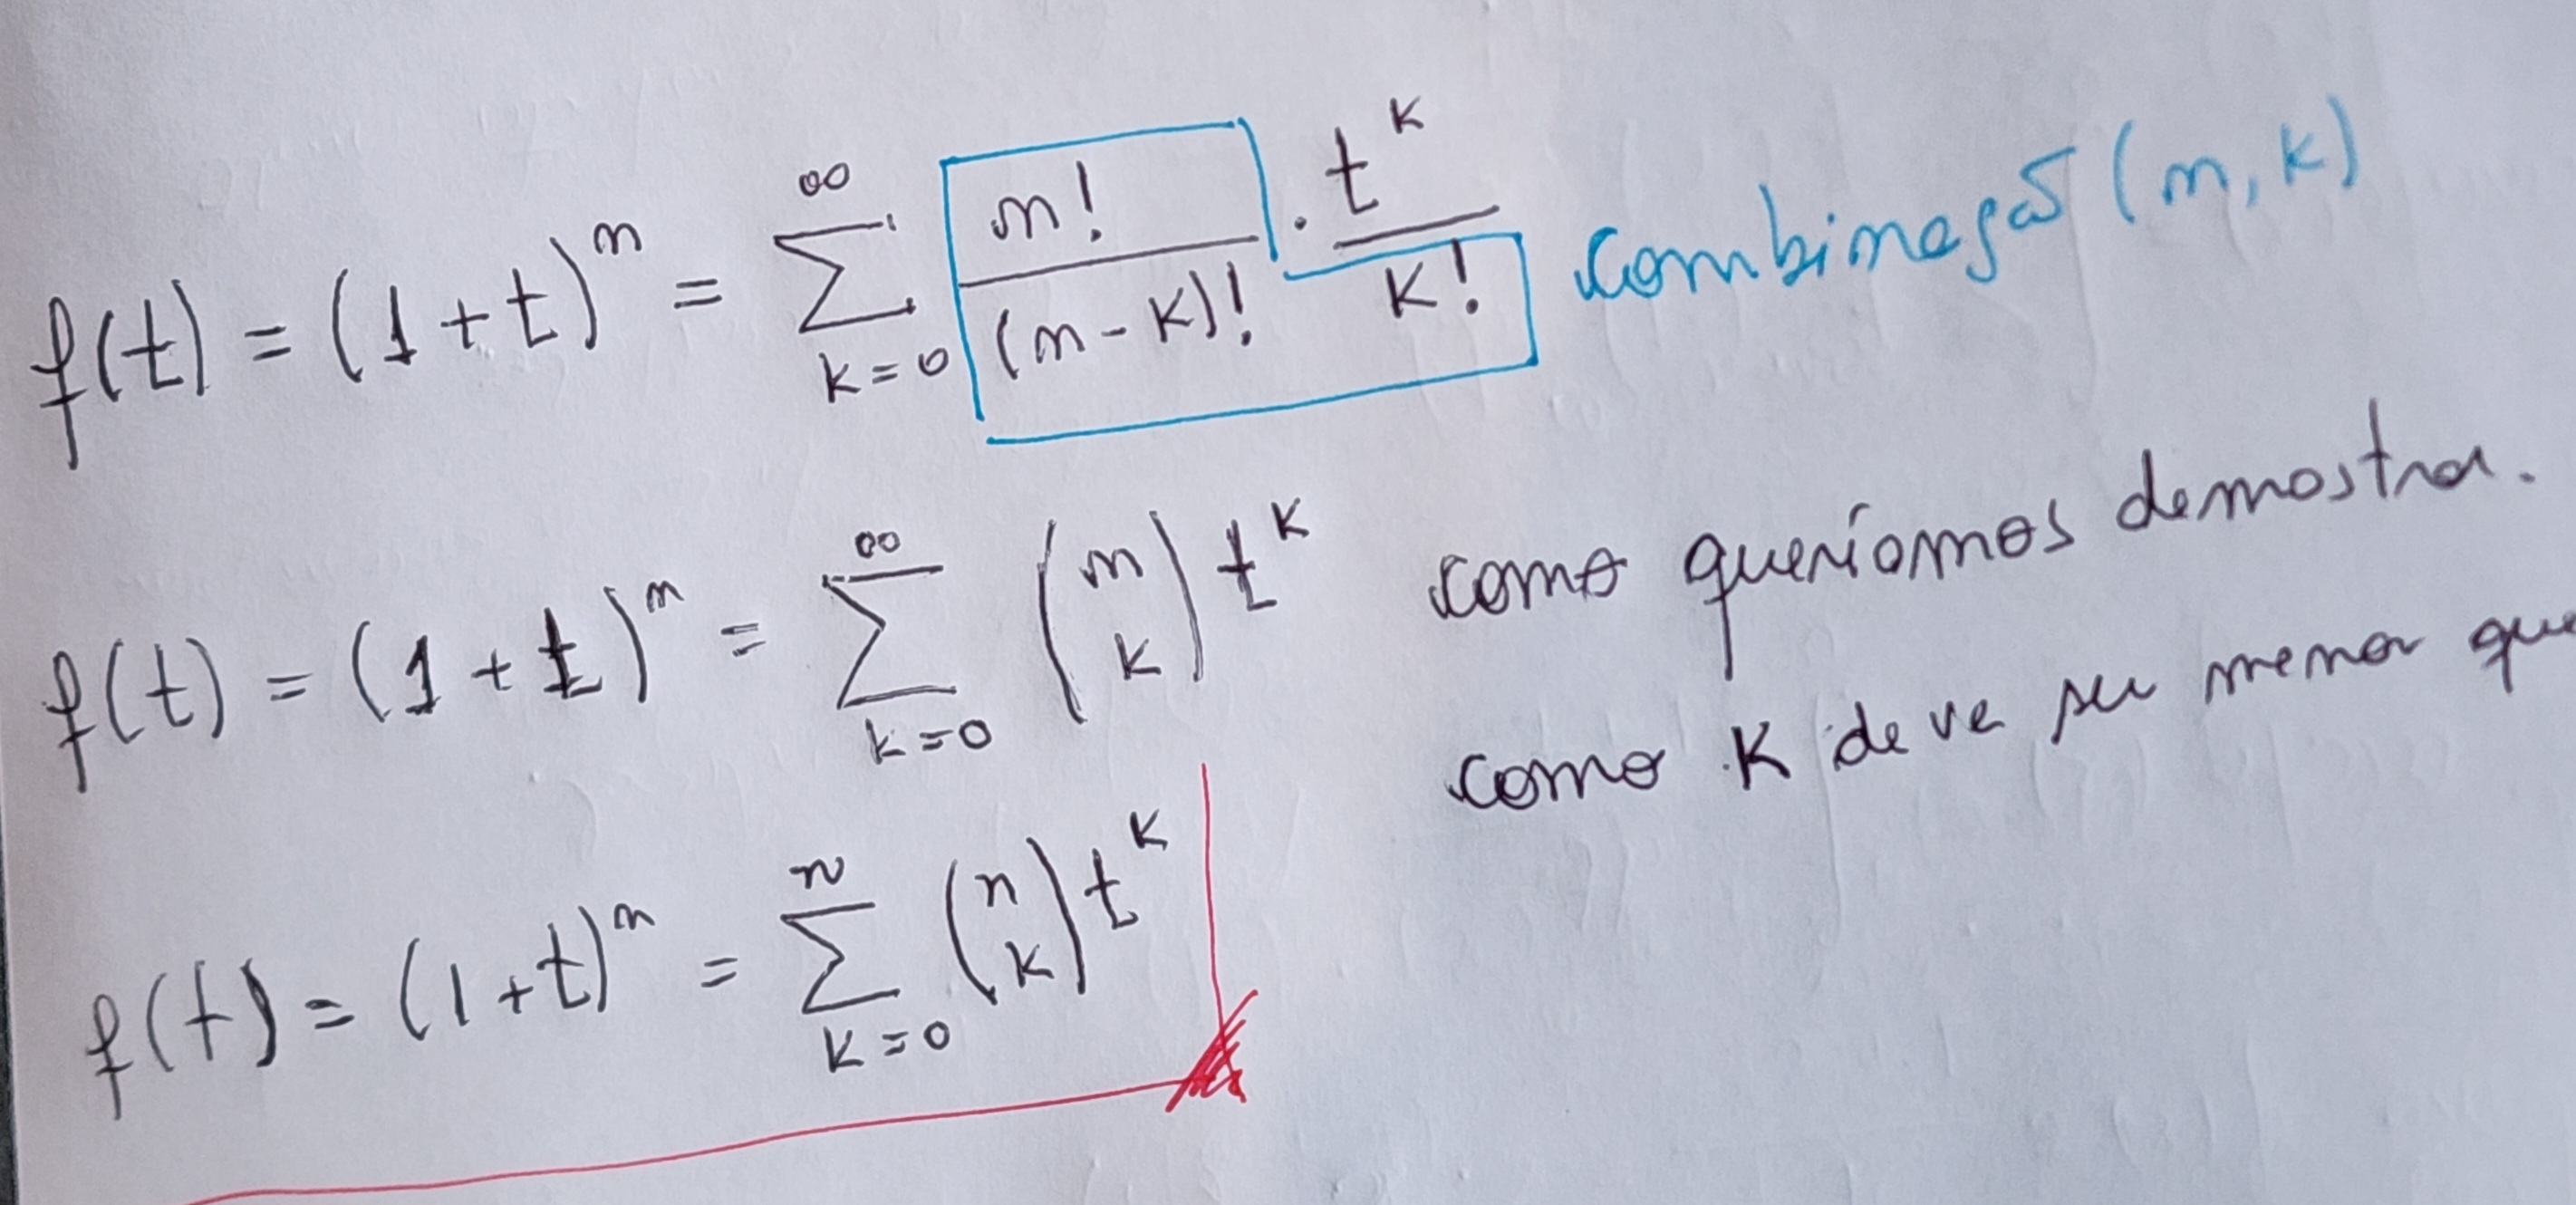 f(t) = (1+t)^n = ∞ ∑ k=0 n!/(n-k)! · t^k/k! combinação (n, k)
f(t) = (1+t)^n = ∞ ∑ k=0 (n k) t^k como queríamos demostra.
como K deve ser menor que
f(t) = (1+t)^n = n ∑ k=0 (n k) t^k